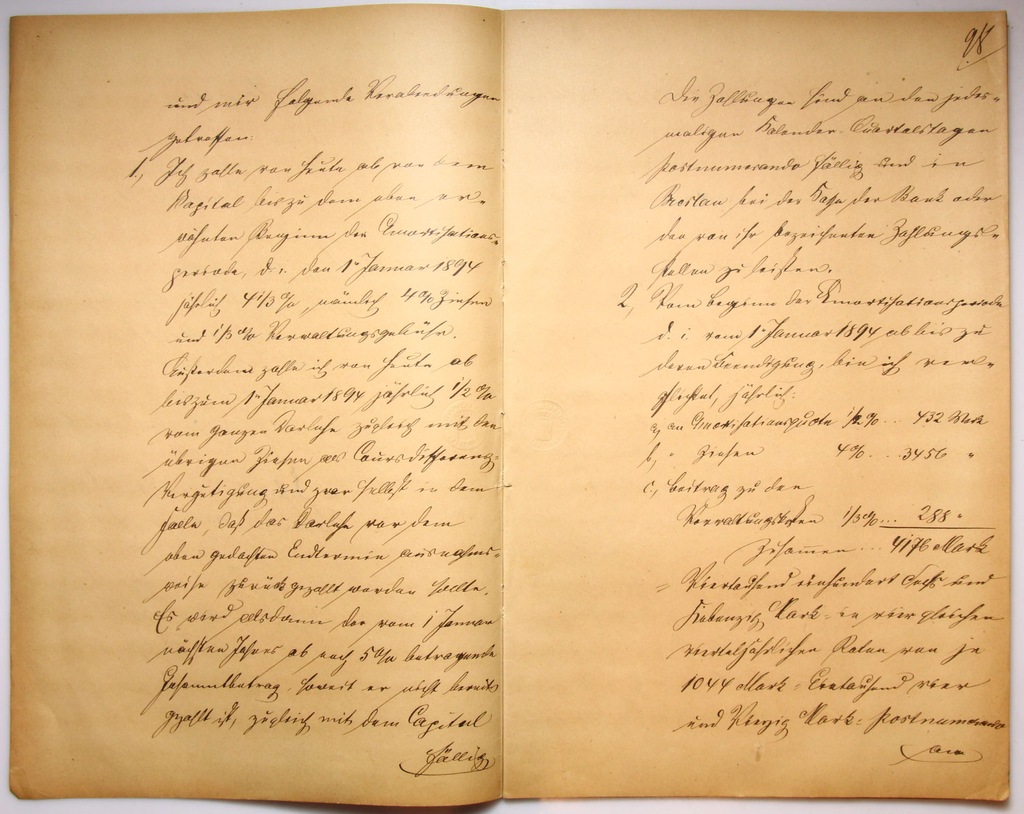 und mir folgende Verabredungen
getroffen:
1., Ich zahle von heute ab, von dem
Kapital bis zu dem oben er-
wähnten Beginn der Amortisations-
periode, d. i. den 1ᵗ Januar 1894
jährlich 4 1/3 %, nämlich 4 % Zinsen
und 1/3 % Verwaltungsgebühr.
Außerdem zahle ich von heute ab
bis zum 1ᵗ Januar 1894 jährlich 1/2 %
vom ganzen Darlehn zugleich mit den
übrigen Zinsen als Coursdifferenz-
Vergütigung und zwar selbst in dem
Falle, daß das Darlehn vor dem
oben gedachten Endtermin ausnahms-
weise zurückgezahlt werden sollte.
Es wird alsdann der vom 1 Januar
nächsten Jahres ab noch 5 % betragende
Gesammtbetrag, soweit er nicht bereits
gezahlt ist, zugleich mit dem Capital
fällig
98
Die Zahlungen sind an den jedes-
maligen Kalender-Quartalstagen
postnumerando fällig und in
Breslau bei der Kasse der Bank oder
den von ihr bezeichneten Zahlungs-
stellen zu leisten.
2, Vom Beginne der Amortisationsperiode
d. i. vom 1ᵗ Januar 1894 ab bis zu
deren Beendigung, bin ich ver-
pflichtet, jährlich:
a, an Amortisationsquote 1/2 % ... 432 Mark
b, " Zinsen 4 % ... 3456 "
c., Beitrag zu den
Verwaltungskosten 1/3 % ... 288 "
Zusammen ... 4176 Mark
= Viertausend einhundert Sechs und
Siebenzig Mark = in vier gleichen
vierteljährlichen Raten von je
1044 Mark = Eintausend vier
und Vierzig Mark = postnumerando
am